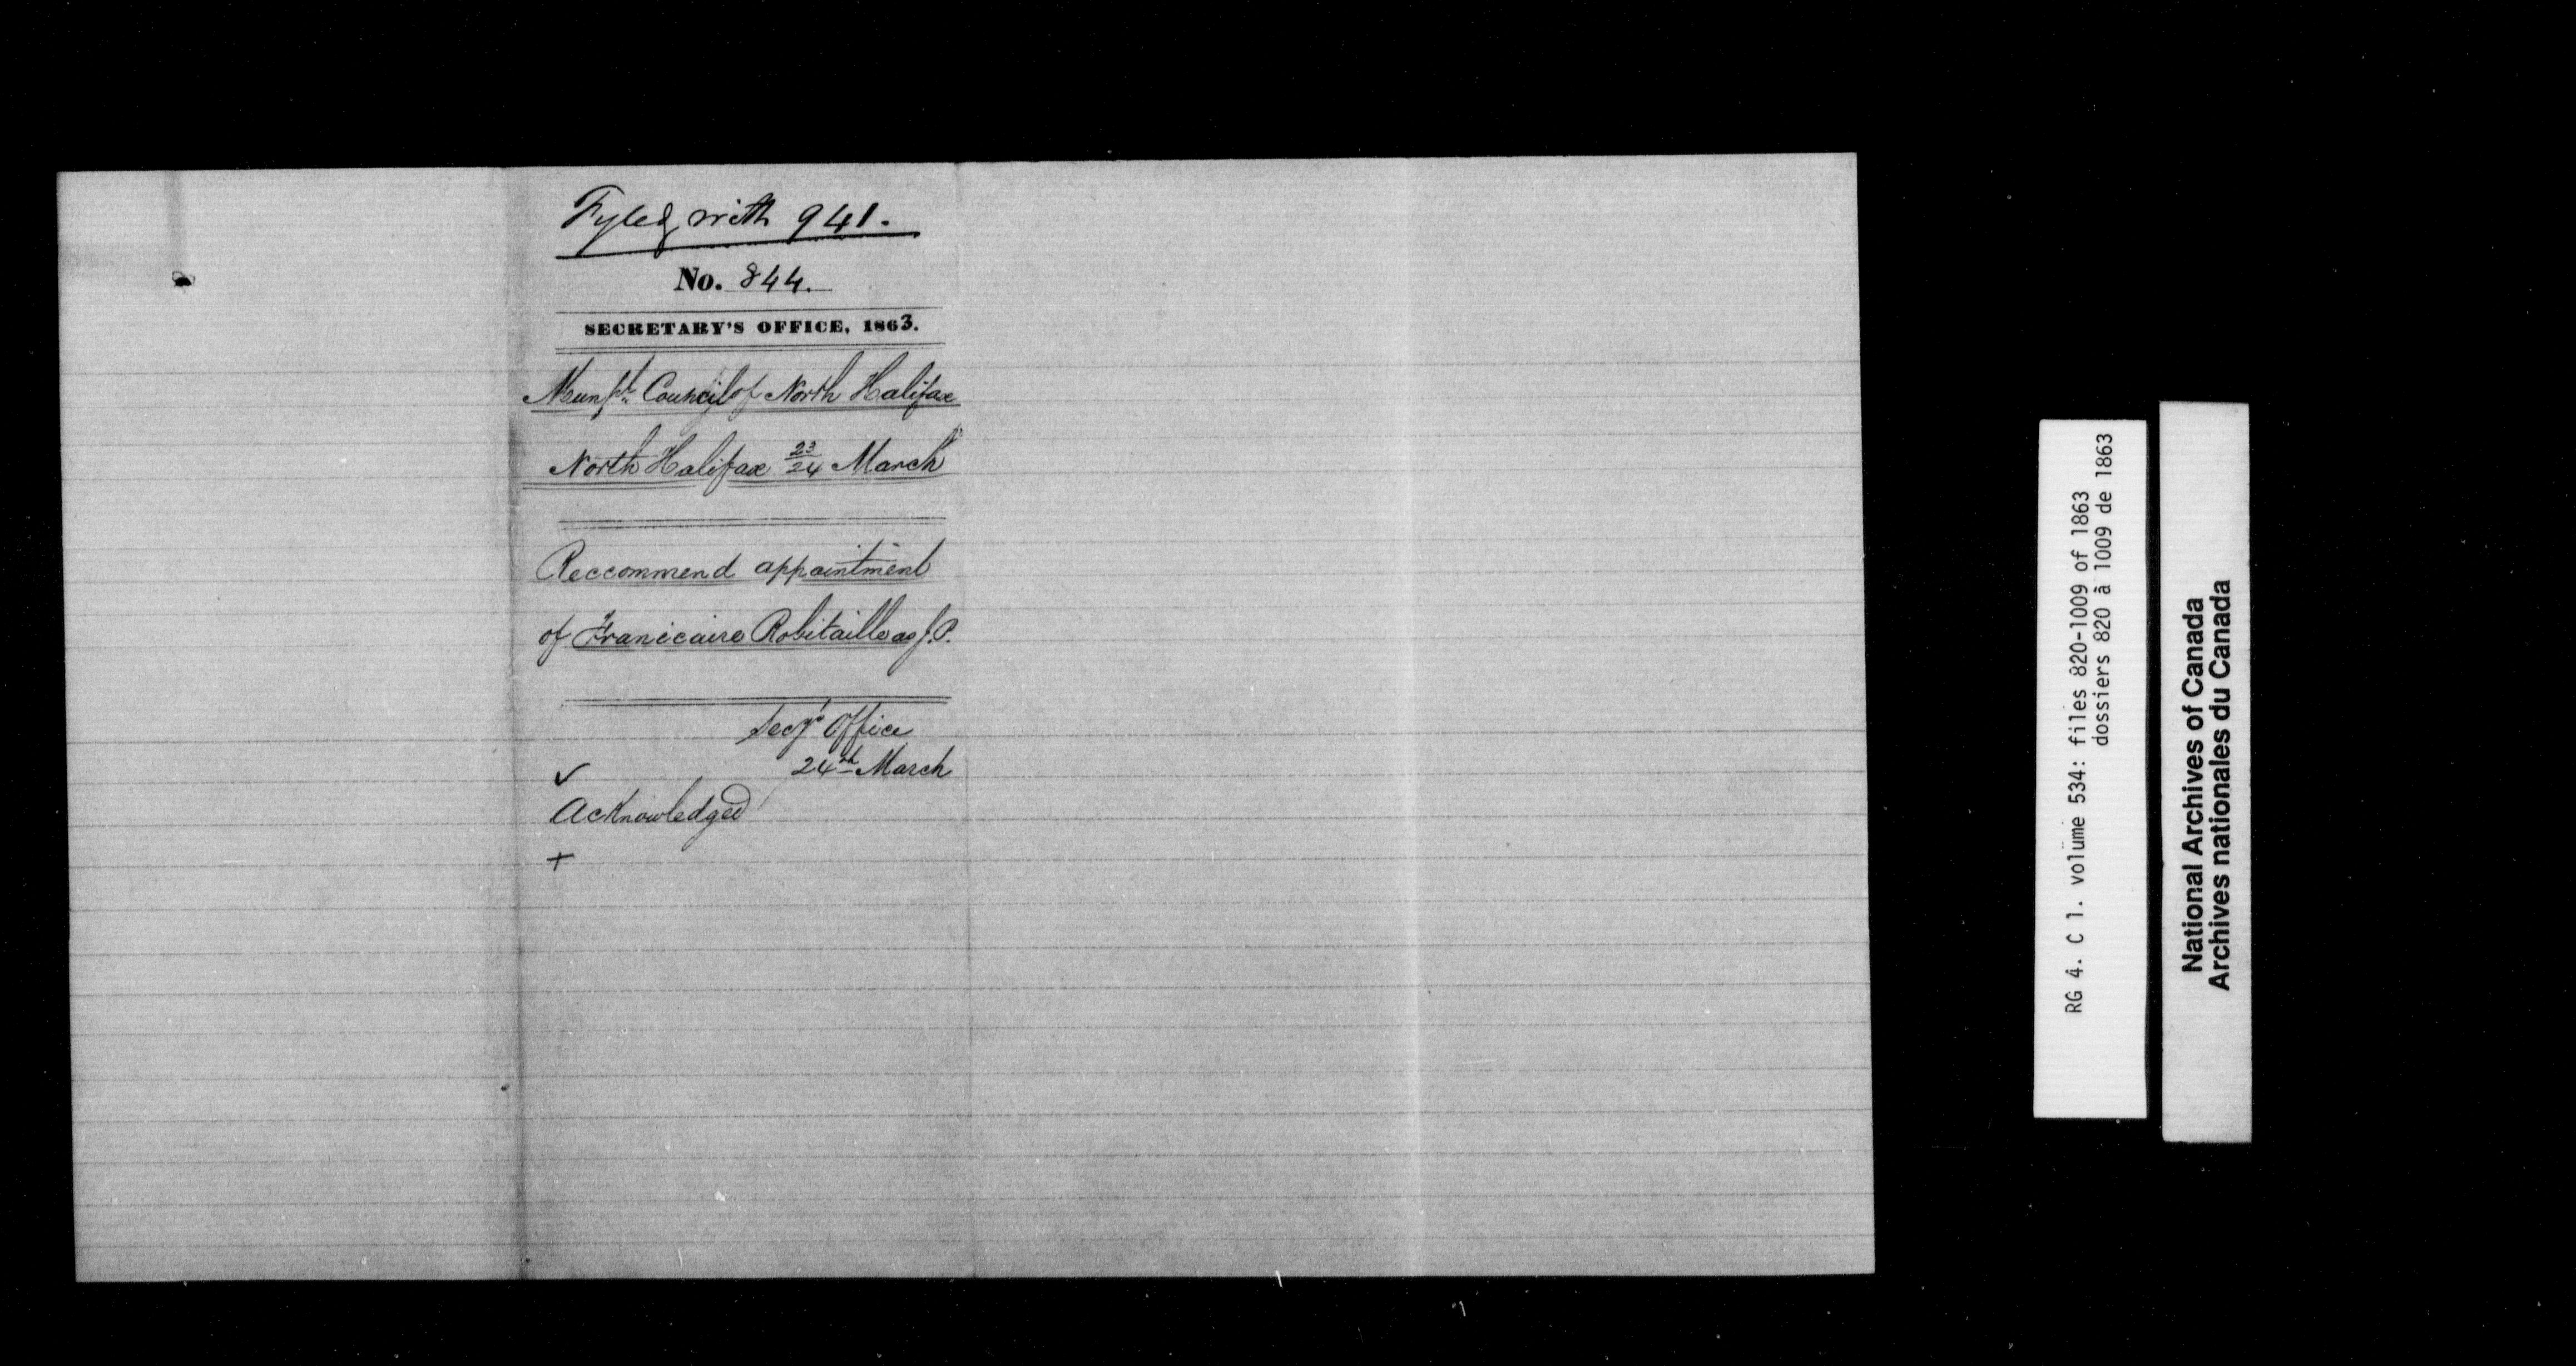 Fyled with 941.
No. 844.
SECRETARY'S OFFICE, 1863.
Council of North Halifax
North Halifax 23/24 March
Reccommend appointment
of Robitaille as J.P.
Secys Office
✓ 24th March
Acknowledged
+
RG 4. C 1. volume 534: files 820-1009 of 1863
dossiers 820 à 1009 de 1863
National Archives of Canada
Archives nationales du Canada